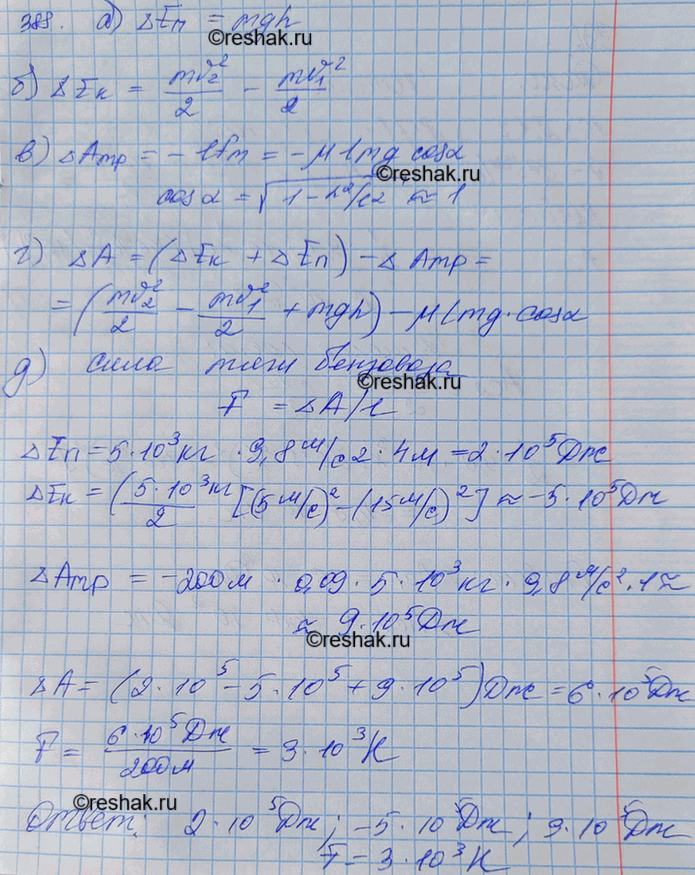 388. а) ΔEп = mgh
©reshak.ru
б) ΔEк = mv₂²/2 - mv₁²/2
в) ΔAтр = - lFт = - μlmg cosα
©reshak.ru
cosα = √(1 - h²/l²) ≈ 1
г) ΔA = (ΔEк + ΔEп) - ΔAтр =
= (mv₂²/2 - mv₁²/2 + mgh) - μlmg·cosα
д) сила тяги бензовоза
©reshak.ru
F = ΔA/l
ΔEп = 5·10³кг · 9,8 м/с2 · 4м = 2·10⁵Дж
ΔEк = (5·10³кг/2 [(5м/с)² - (15м/с)²] ≈ -5·10⁵Дж
ΔAтр = -200м · 0,09 · 5·10³кг · 9,8 м/с² · 1 ≈
≈ 9·10⁵Дж
©reshak.ru
ΔA = (2·10⁵ - 5·10⁵ + 9·10⁵)Дж = 6·10⁵Дж
F = 6·10⁵Дж/200м = 3·10³Н
©reshak.ru
Ответ: 2·10⁵Дж; -5·10⁵Дж; 9·10⁵Дж
F = 3·10³Н